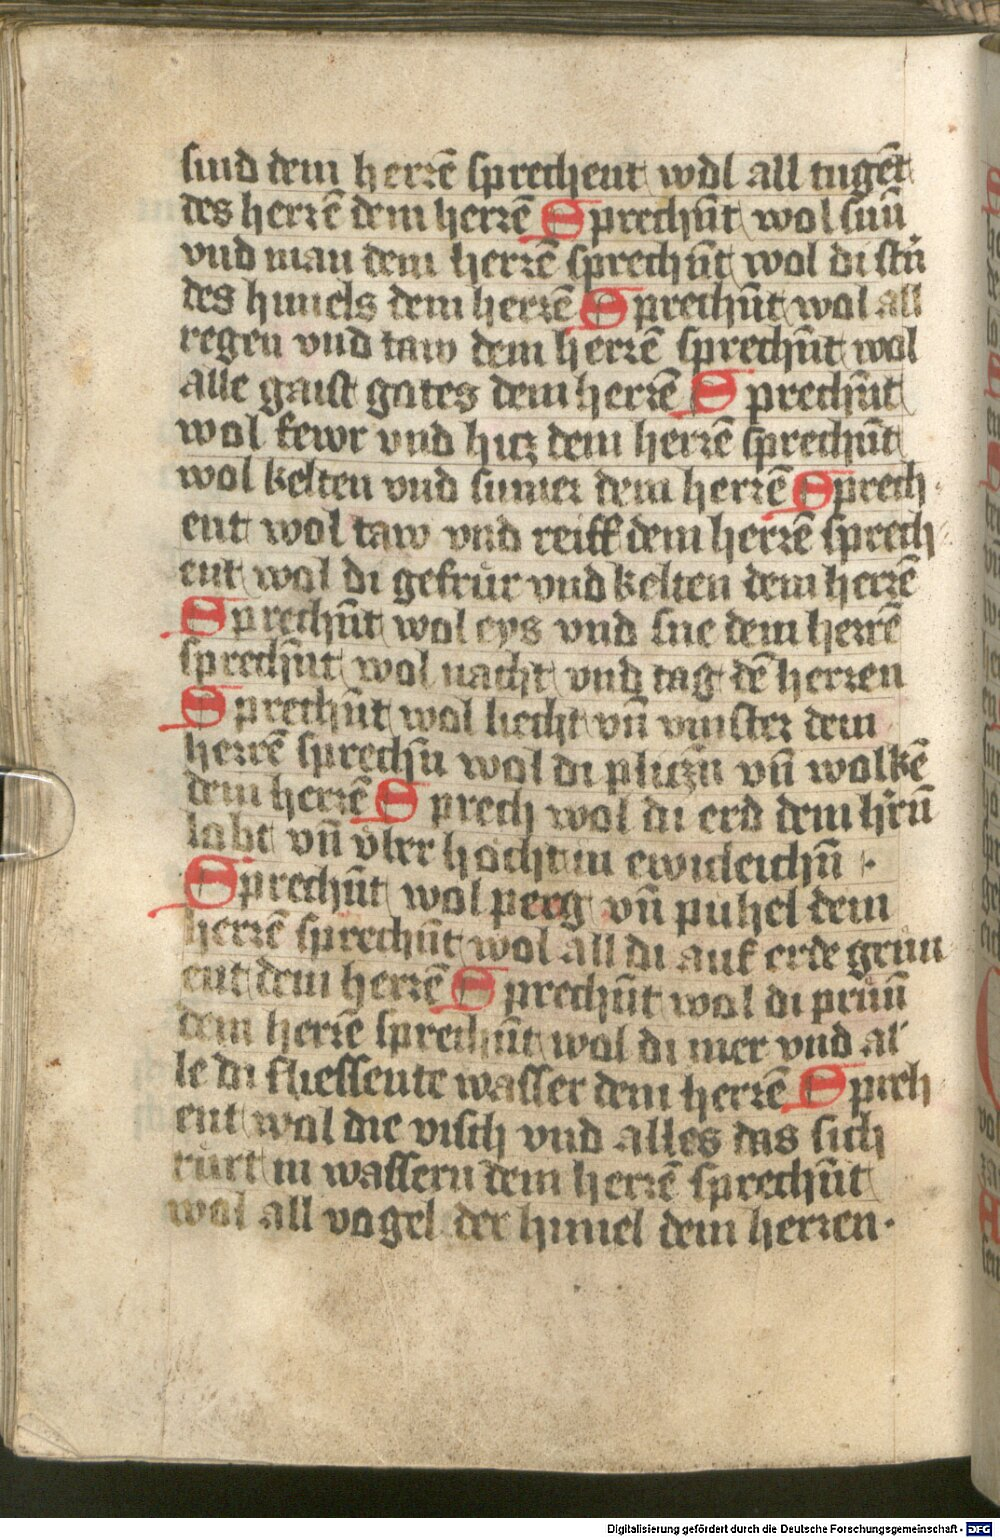 sind dem herrē sprechent wol all tugēt
des herrē dem herrē Sprechn̄t wol sun̄
vnd man dem herrē sprechn̄t wol di stn̄
des himels dem herrē Sprechn̄t wol all
regen vnd taw dem herrē sprechn̄t wol
alle gaist gotes dem herrē Sprechn̄t
wol fewr vnd hitz dem herrē sprechn̄t
wol kelten vnd sumer dem herrē Sprech
ent wol taw vnd reiff dem herrē sprech
ent wol di gefrür vnd kelten dem herrē
Sprechn̄t wol eys vnd sne dem herrē
sprechn̄t wol nacht vnd tag dē herren
Sprechn̄t wol liecht vn̄ vinster dem
herrē sprechn̄ wol di plitzn̄ vn̄ wolkē
dem herrē Sprech wol di erd dem hern̄
lobt vn̄ vber hocht in ewicleichn̄
Sprechn̄t wol perg vn̄ puhel dem
herrē sprechn̄t wol all di auf erde grün
ent dem herrē Sprechn̄t wol di prün̄
dem herrē sprechn̄t wol di mer vnd al
le di fliessente wasser dem herrē Sprch
ent wol die visch vnd alles das sich
rürt in wassern dem herrē sprechn̄t
wol all vogel der himel dem herren·
Digitalisierung gefördert durch die Deutsche Forschungsgemeinschaft - DFG